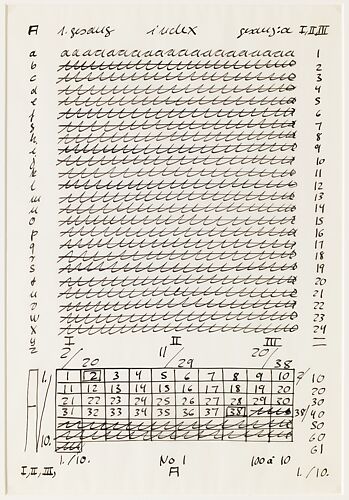 A 1. gesang index gesang: a I, II, III
a aaaaaaaaaaaaaaaaaaaaaaaa 1
b 2
c 3
d 4
e 5
f 6
g 7
h 8
i 9
j 10
k 11
l 12
m 13
n 14
o 15
p 16
q 17
r 18
s 19
t 20
u 21
v 22
w 23
x 24
y I II III
z 2/20 11/29 20/38
1. 1 2 3 4 5 6 7 8 9 10 2/10
11 12 13 14 15 16 17 18 19 20 20
21 22 23 24 25 26 27 28 29 30 30
31 32 33 34 35 36 37 38 38/40
50
10. 60
61
I, II, III, 1./10. No 1 100 à 10 1./10.
A